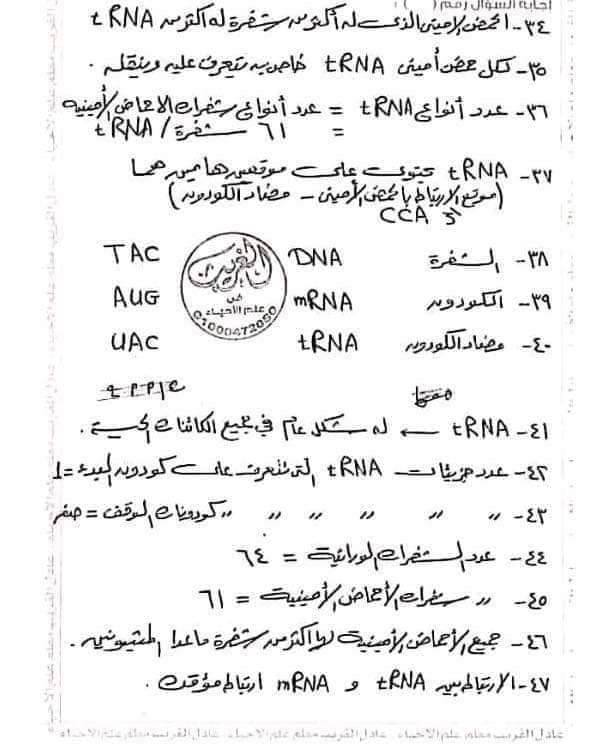 إجابة السؤال رقم ( ) :
٣٤- الحمض الاميني الذي له أكثر من شفرة له أكثر من tRNA
٣٥- لكل حمض أميني tRNA خاص به يتعرف عليه وينقله .
٣٦- عدد أنواع tRNA = عدد أنواع شفرات الاحماض الأمينية
= ٦١ شفرة / tRNA
٣٧- tRNA تحتوى على موقعين هامين هما
(موقع الارتباط بالحمض الأميني - مضاد الكودون)
CCA 3'
٣٨- الشفرة DNA TAC
٣٩- الكودون mRNA AUG
٤٠- مضاد الكودون tRNA UAC
الغريب
في
علم الأحياء
01000472050
٤١- tRNA ← له شكل عام في جميع الكائنات الحية .
٤٢- عدد جزيئات tRNA التى تتعرف على كودون البدء = 1
٤٣- " " " " " " كودونات الوقف = صفر
٤٤- عدد الشفرات الوراثية = ٦٤
٤٥- " شفرات الأحماض الأمينية = ٦١
٤٦- جميع الأحماض الأمينية لها أكثر من شفرة ماعدا المثيونين .
٤٧- الارتباط بين tRNA و mRNA ارتباط مؤقت .
عادل الغريب معلم علم الاحياء . عادل الغريب معلم علم الاحياء . عادل الغريب معلم علم الاحياء